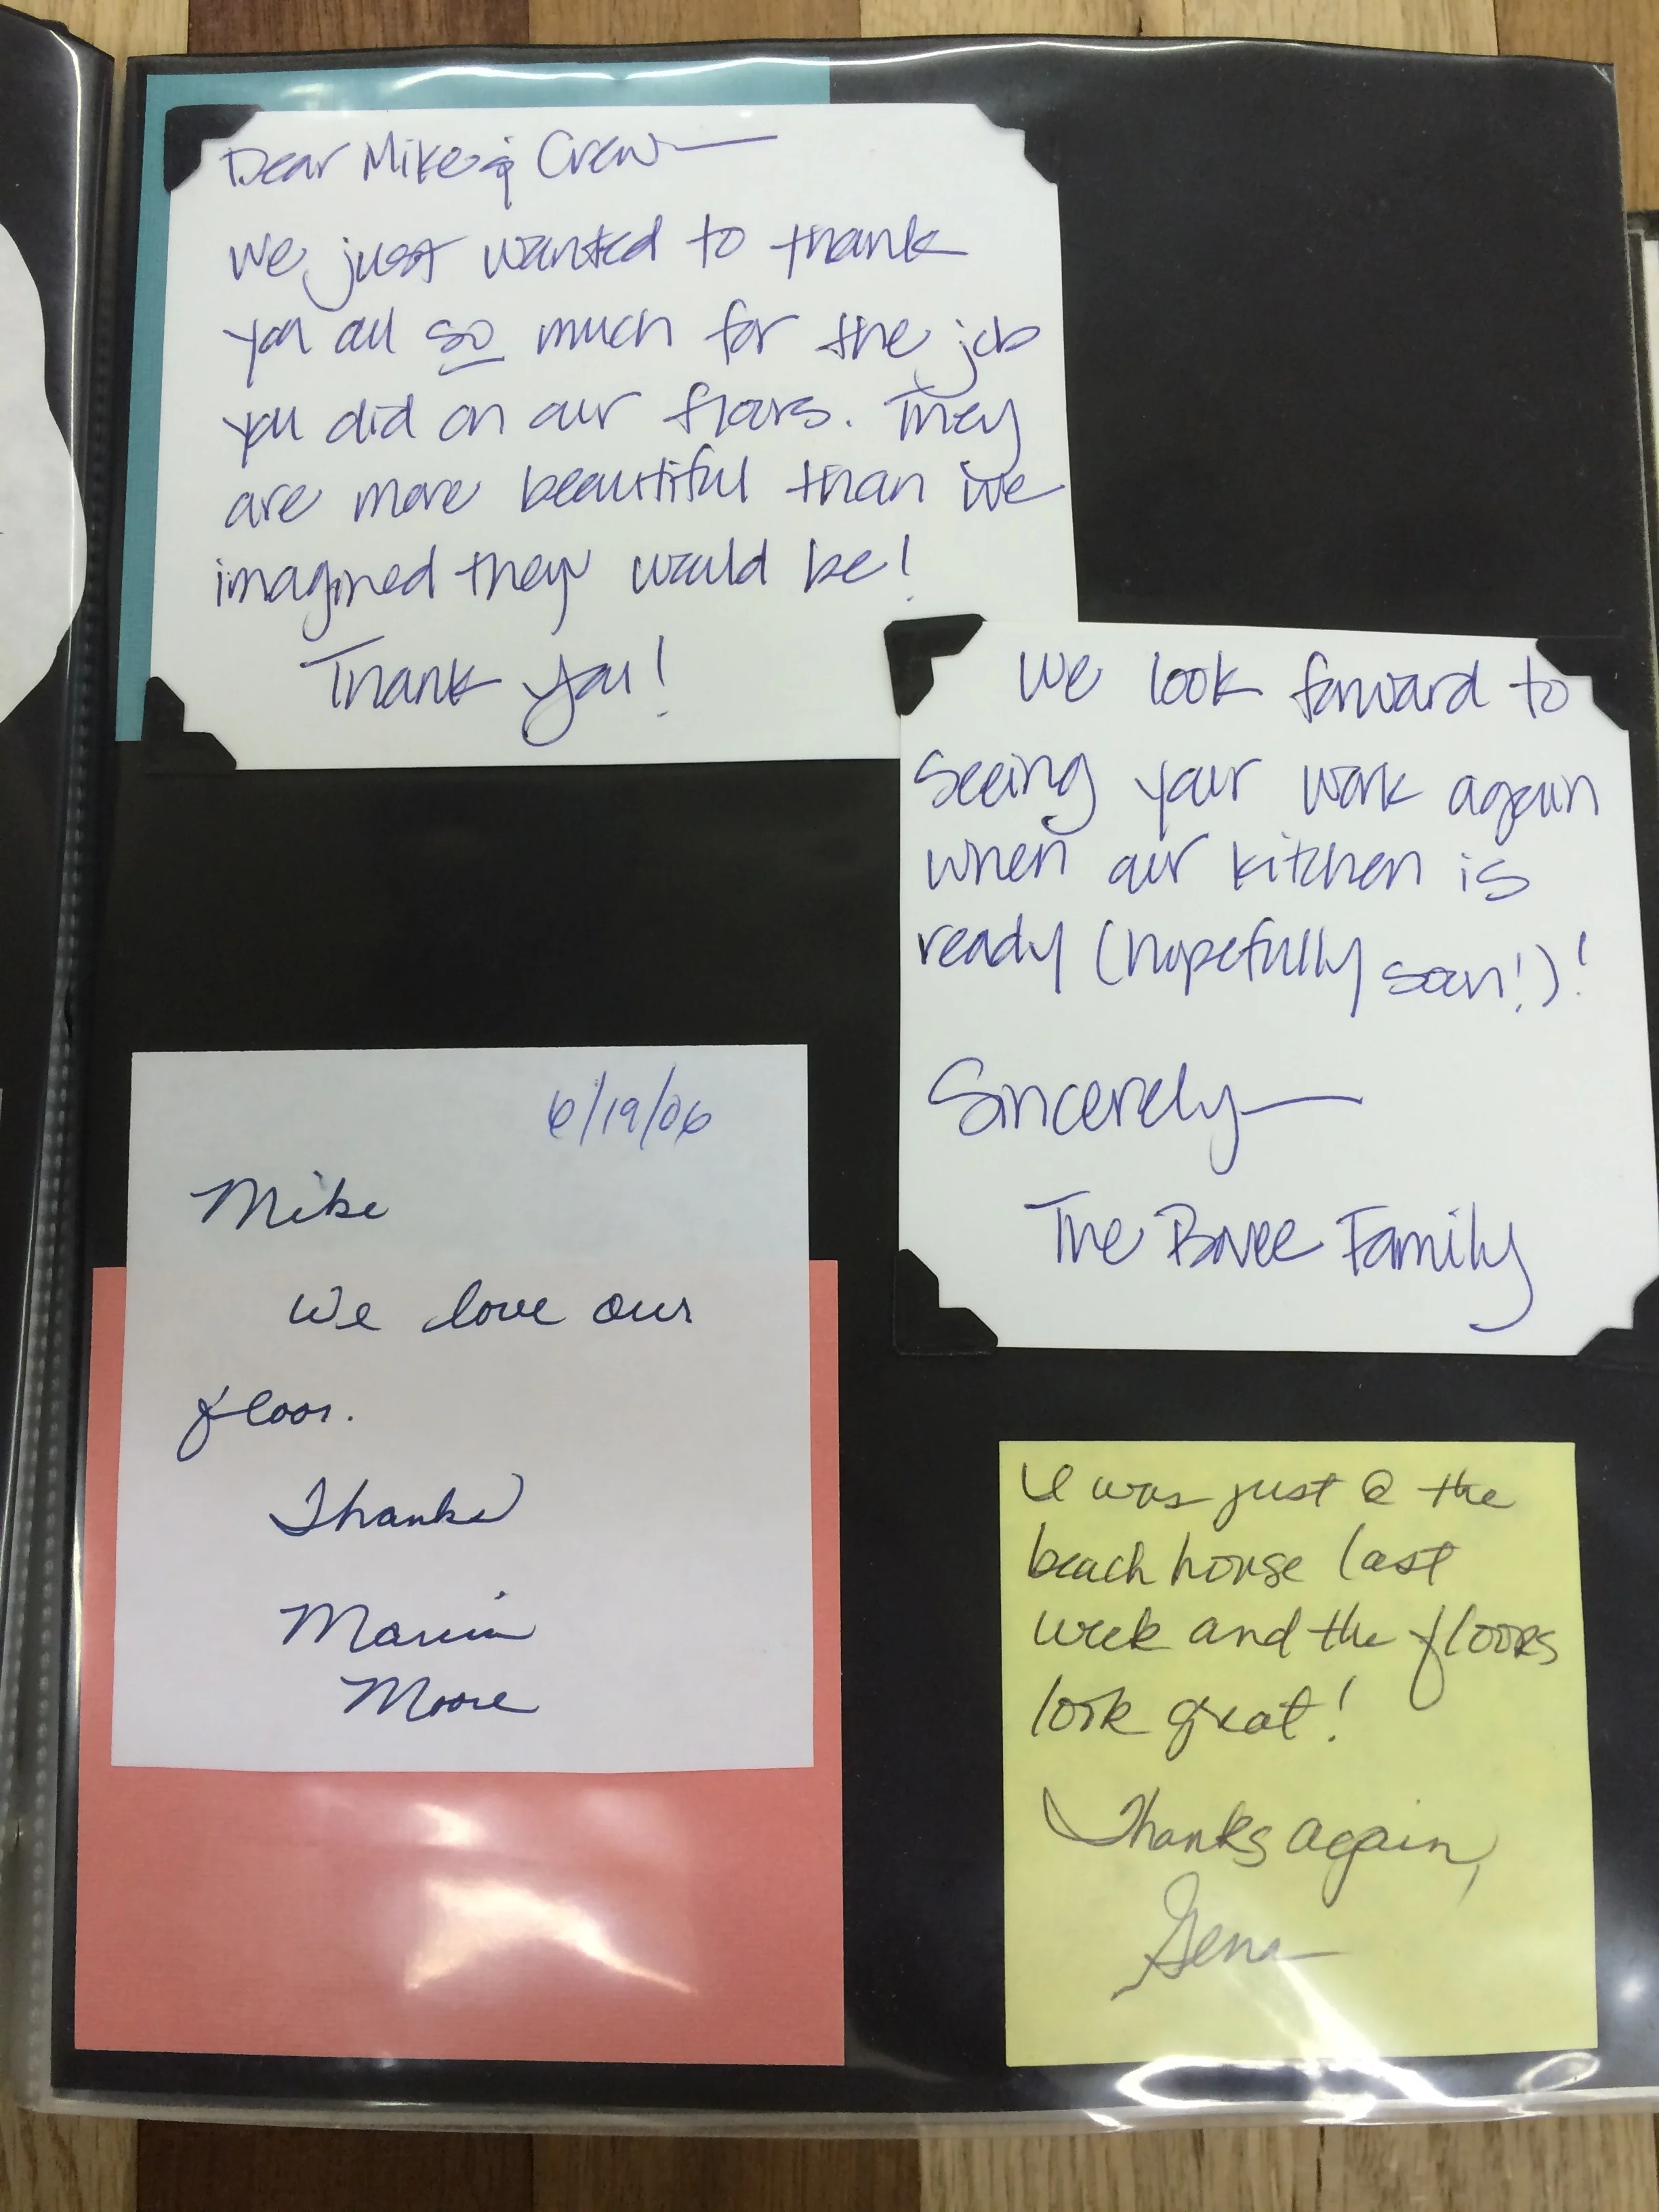 Dear Mike & Crew—
We just wanted to thank
you all so much for the job
you did on our floors. They
are more beautiful than we
imagined they would be!
Thank you!
We look forward to
seeing your work again
when our kitchen is
ready (hopefully soon!)!
Sincerely—
The Bovee Family
6/19/06
Mike
We love our
floor.
Thanks
Moore
I was just @ the
beach house last
week and the floors
look great!
Thanks again,
Gena